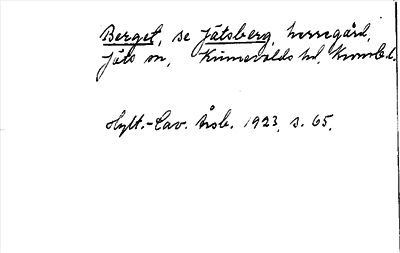 Berget, se Jätsberg, herregård,
Jäts sn, Kinnevalds hd, Kronob. l.
Hylt.-Cav. årsb. 1923, s. 65.